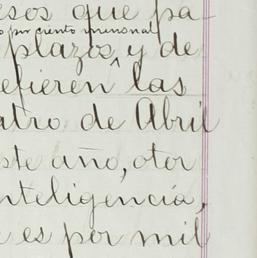 esos que pa
o por ciento mensual
plazos, y de
efieren las
atro de Abril
ste año, otor
nteligencia,
e es por mil